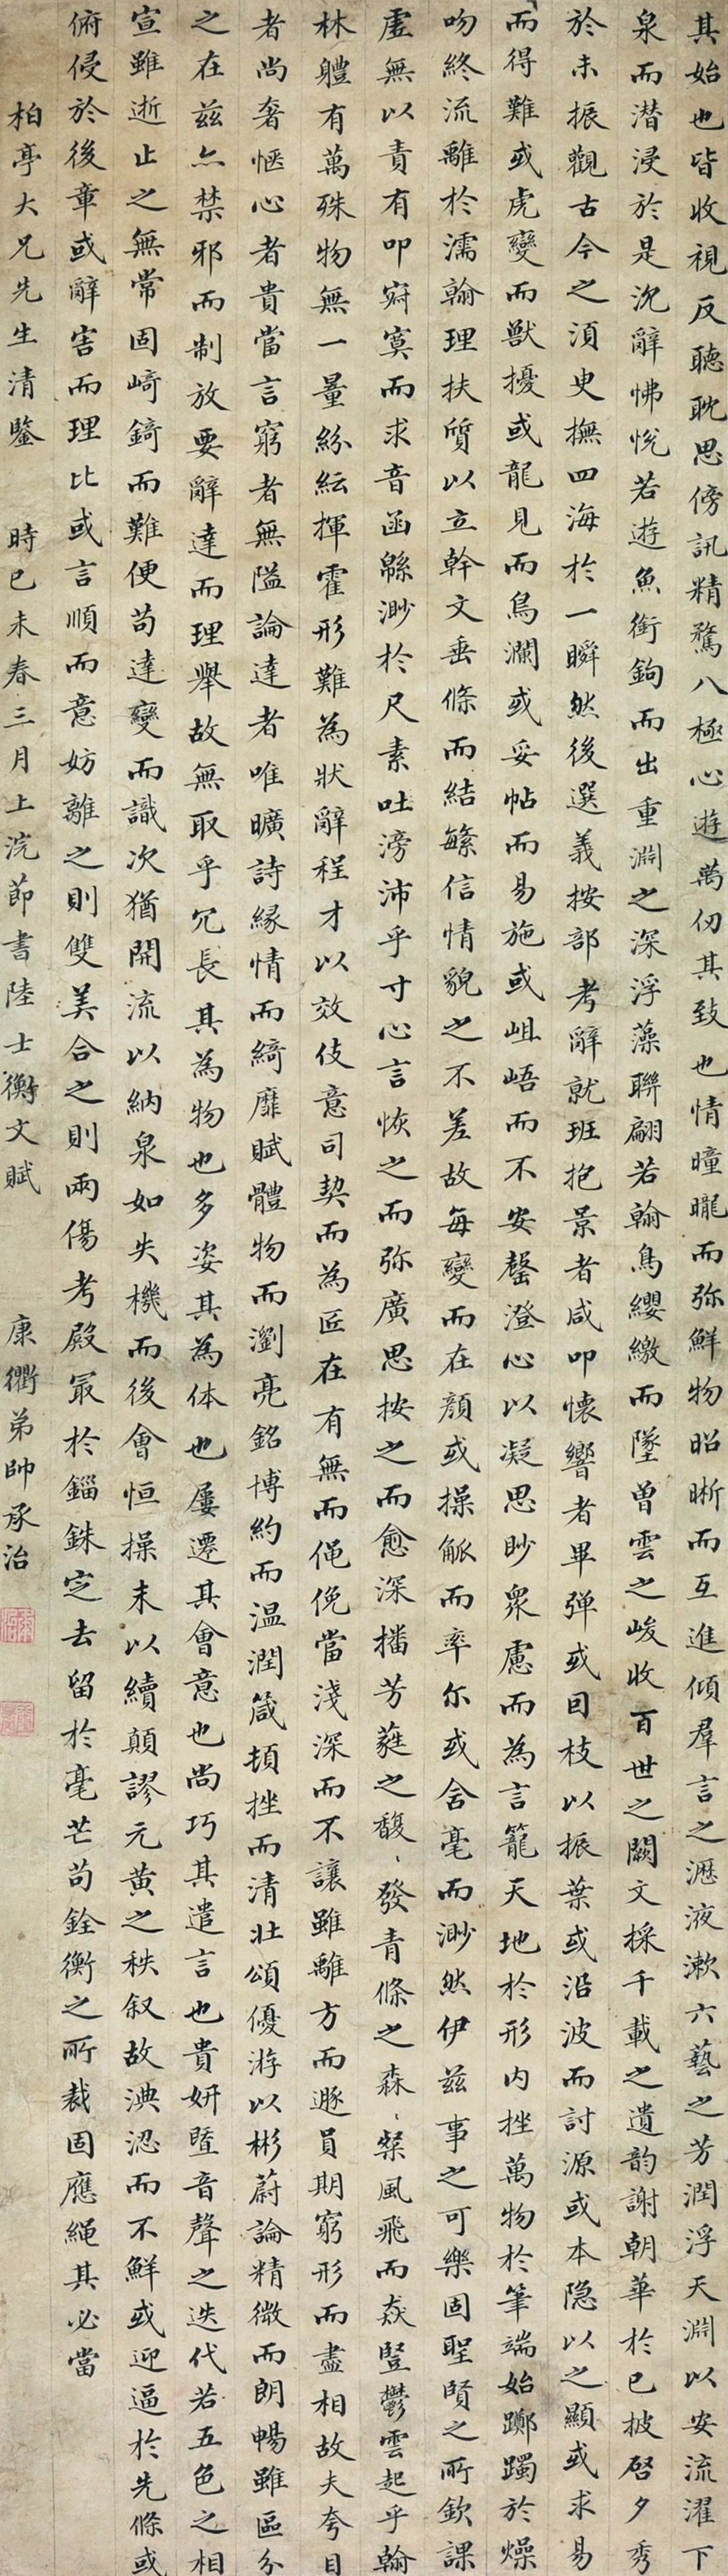 其始也皆收視反聽耽思傍訊精騖八極心遊萬仞其致也情曈曨而弥鮮物昭晣而互進傾羣言之瀝液漱六藝之芳潤浮天淵以安流濯下
泉而潜浸於是沉辭怫悅若遊魚銜鉤而出重淵之深浮藻聯翩若翰鳥纓繳而墜曾雲之峻收百世之闕文採千載之遺韵謝朝華於已披啓夕秀
於未振觀古今之須臾撫四海於一瞬然後選義按部考辭就班抱景者咸叩懷響者畢弹或因枝以振葉或沿波而討源或本隐以之顯或求易
而得難或虎變而獸擾或龍見而鳥瀾或妥帖而易施或岨峿而不安罄澄心以凝思眇衆慮而為言籠天地於形内挫萬物於筆端始躑躅於燥
吻終流離於濡翰理扶質以立幹文垂條而結繁信情貌之不差故每變而在顏或操觚而率尔或含毫而渺然伊茲事之可樂固聖賢之所欽課
虛無以責有叩寂寞而求音函緜渺於尺素吐滂沛乎寸心言恢之而弥廣思按之而愈深播芳蕤之馥〻發青條之森〻粲風飛而猋豎鬱雲起乎翰
林體有萬殊物無一量紛紜揮霍形難為狀辭程才以效伎意司契而為匠在有無而僶俛當淺深而不讓雖離方而遯員期窮形而盡相故夫夸目
者尚奢惬心者貴當言窮者無隘論達者唯曠詩緣情而綺靡賦體物而瀏亮銘博約而温潤箴頓挫而清壯頌優游以彬蔚論精微而朗暢雖區分
之在茲亦禁邪而制放要辭達而理舉故無取乎冗長其為物也多姿其為体也屢遷其會意也尚巧其遣言也貴妍暨音聲之迭代若五色之相
宣雖逝止之無常固崎錡而難便苟達變而識次猶開流以納泉如失機而後會恒操末以續顛謬元黄之秩叙故淟涊而不鮮或迎逼於先條或
俯侵於後章或辭害而理比或言順而意妨離之則雙美合之則兩傷考殿最於錙銖定去留於毫芒苟銓衡之所裁固應繩其必當
柏亭大兄先生清鑒 時己未春三月上浣節書陸士衡文賦 康衢弟帥承治